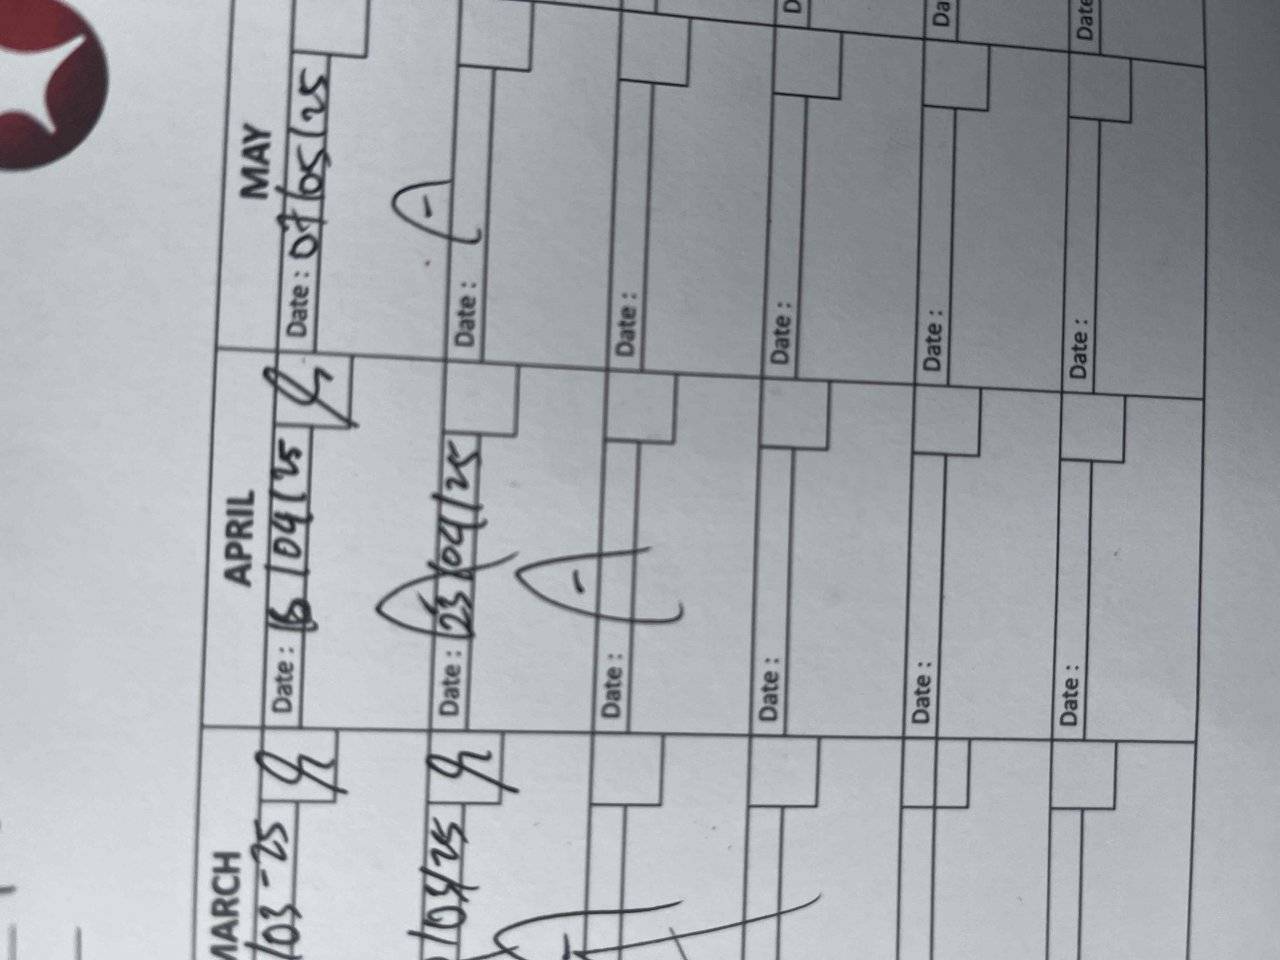 MARCH
/03-25
/03/25
APRIL
Date : /04/25
Date : 23/04/25
Date :
Date :
Date :
Date :
MAY
Date : 07/05/25
Date :
Date :
Date :
Date :
Date :
D
Da
Date